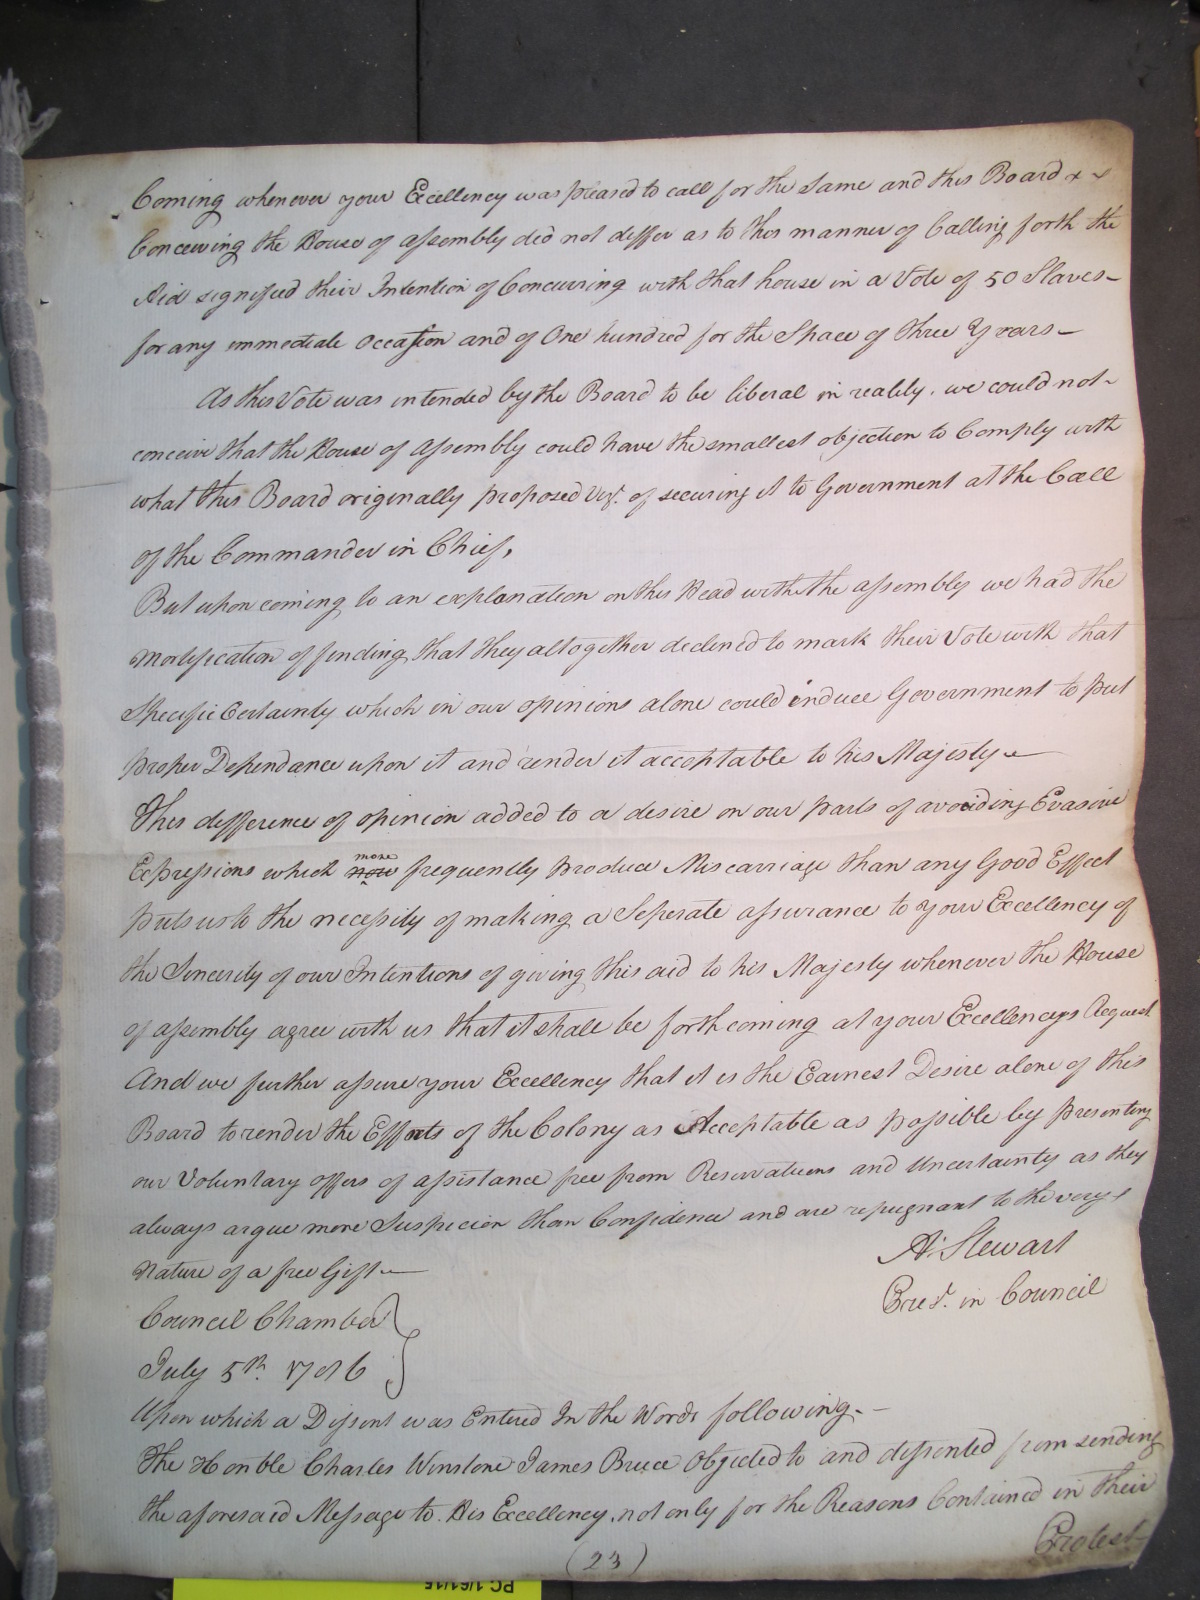 Coming whenever your Excellency was pleased to call for the same and this Board
Conceiving the House of assembly did not differ as to this manner of Calling forth the
Aid signifued their Intention of Concurring with that house in a Vote of 50 Slaves-
for any immediate occasion and of One hundred for the Space of three Years-
As this Vote was intended by the Board to be liberal in reality, we could not-
conceive that the House of Assembly could have the smallest objection to Comply with
what this Board originally proposed Vizt. of securing it to Government at the Call
of the Commander in Chief,
But upon coming to an explanation on this Head with the assembly we had the
Mortification of finding that they altogether declined to mark their Vote with that
Specific Certainty which in our opinions alone could induce Government to put
proper Dependance upon it and render it acceptable to his Majesty-
This difference of opinion added to a desire on our parts of avoiding Evasive
more
Expressions which now frequently produce Miscarriage than any Good Effect
puts us to the necessity of making a Seperate assurance to your Excellency of
the Sincerity of our Intentions of giving this aid to his Majesty whenever the House
of assembly agree with us that it shall be forthcoming at your Excellencys Request
And we further assure your Excellency that it is the Earnest Desire alone of this
Board to render the Efforts of the Colony as Acceptable as possible by presenting
our Voluntary offers of assistance free from Reservations and Uncertainty as they
always argue more Suspicion than Confidence and are repugnant to the very
Nature of a free Gift-
A. Stewart
Prest. in Council
Council Chamber
July 5th. 1786
Upon which a Dissent was Entered In the Words following.-
The Honble Charles Winstone James Bruce Objected to and dissented from sending
the aforesaid Message to His Excellency, not only for the Reasons Contained in their
Protest-
(23)
PC 1/61/15